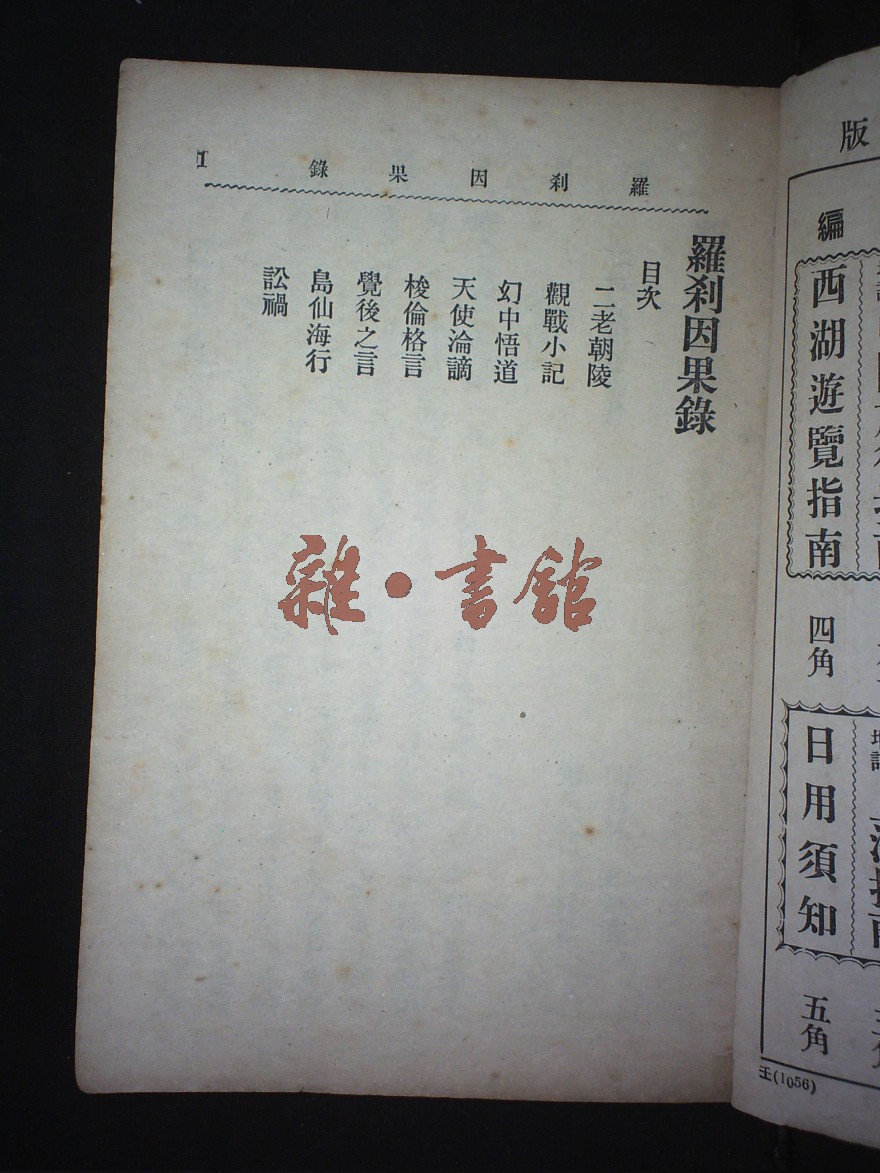 羅刹因果錄
羅刹因果錄
目次
二老朝陵
觀戰小記
幻中悟道
天使淪謫
梭倫格言
覺後之言
島仙海行
訟禍
雜·書館
版
編
西湖遊覽指南
四角
日用須知
五角
王(1056)